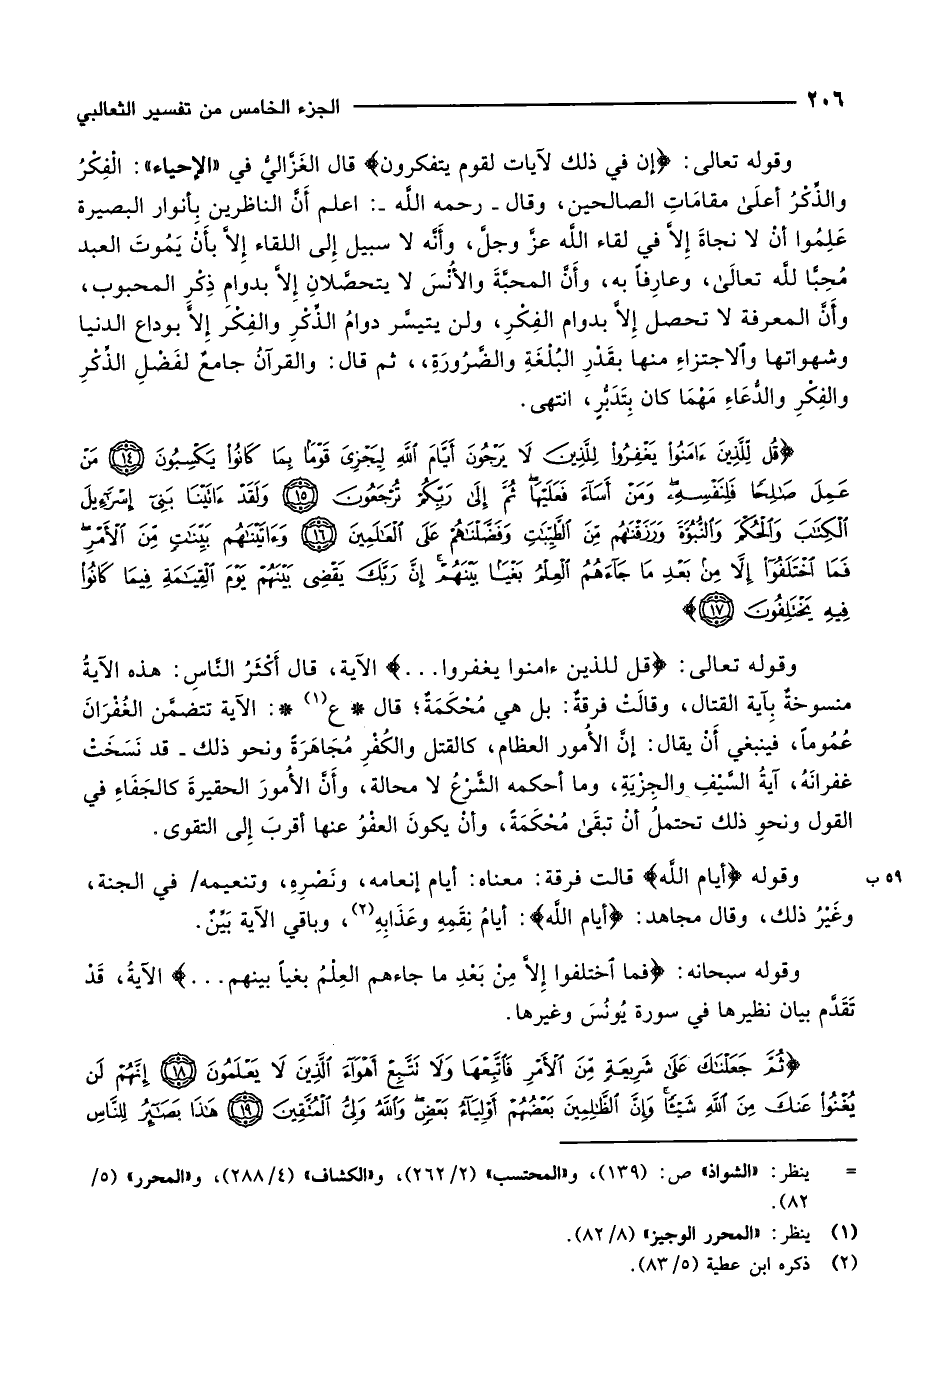 ٢٠٦ الجزء الخامس من تفسير الثعالبي
وقوله تعالى: ﴿إن في ذلك لآيات لقوم يتفكرون﴾ قال الغَزَّاليُّ في «الإحياء»: الْفِكْرُ
والذِّكْرُ أعلَىٰ مقامَاتِ الصالحين، وقال ـ رحمه اللَّه ـ: اعلم أَنَّ الناظرين بأنوار البصيرة
عَلِمُوا أنْ لا نجاةَ إلاَّ في لقاء اللَّه عزَّ وجلَّ، وأَنَّه لا سبيل إلى اللقاء إلاَّ بأَنْ يَمُوتَ العبد
مُحِبًّا للَّه تعالَىٰ، وعارِفاً به، وأَنَّ المحبَّةَ والأُنْسَ لا يتحصَّلان إلاَّ بدوامِ ذِكْرِ المحبوب،
وأَنَّ المعرفة لا تحصل إلاَّ بدوام الفِكْرِ، ولن يتيسَّر دوامُ الذِّكْرِ والفِكْر إلاَّ بوداع الدنيا
وشهواتها والاجتزاءِ منها بقَدْرِ البُلْغَةِ والضَّرُورَةِ،، ثم قال: والقرآنُ جامعٌ لفَضْلِ الذِّكْرِ
والفِكْرِ والدُّعَاءِ مَهْمَا كان بِتَدَبُّرٍ، انتهى.
﴿قُل لِّلَّذِينَ ءَامَنُوا۟ يَغْفِرُوا۟ لِلَّذِينَ لَا يَرْجُونَ أَيَّامَ ٱللَّهِ لِيَجْزِىَ قَوْمًۢا بِمَا كَانُوا۟ يَكْسِبُونَ ١٤ مَنْ
عَمِلَ صَٰلِحًا فَلِنَفْسِهِۦۖ وَمَنْ أَسَآءَ فَعَلَيْهَاۖ ثُمَّ إِلَىٰ رَبِّكُمْ تُرْجَعُونَ ١٥ وَلَقَدْ ءَاتَيْنَا بَنِىٓ إِسْرَٰٓءِيلَ
ٱلْكِتَٰبَ وَٱلْحُكْمَ وَٱلنُّبُوَّةَ وَرَزَقْنَٰهُم مِّنَ ٱلطَّيِّبَٰتِ وَفَضَّلْنَٰهُمْ عَلَى ٱلْعَٰلَمِينَ ١٦ وَءَاتَيْنَٰهُم بَيِّنَٰتٍ مِّنَ ٱلْأَمْرِۖ
فَمَا ٱخْتَلَفُوٓا۟ إِلَّا مِنۢ بَعْدِ مَا جَآءَهُمُ ٱلْعِلْمُ بَغْيًۢا بَيْنَهُمْۚ إِنَّ رَبَّكَ يَقْضِى بَيْنَهُمْ يَوْمَ ٱلْقِيَٰمَةِ فِيمَا كَانُوا۟
فِيهِ يَخْتَلِفُونَ ١٧﴾
وقوله تعالى: ﴿قل للذين ءامنوا يغفروا...﴾ الآية، قال أَكْثَرُ النَّاسِ: هذه الآيةُ
منسوخةٌ بآية القتال، وقالَتْ فرقةٌ: بل هي مُحْكَمَةٌ؛ قال * ع(١) *: الآية تتضمَّن الغُفْرَانَ
عُمُوماً، فينبغي أَنْ يقال: إنَّ الأمور العظام، كالقتل والكُفْرِ مُجَاهَرَةً ونحو ذلك ـ قد نَسَخَتْ
غفرانَهُ، آيةُ السَّيْفِ والجِزْيَةِ، وما أحكمه الشَّرْعُ لا محالة، وأَنَّ الأمورَ الحقيرةَ كالجَفَاءِ في
القول ونحوِ ذلك تحتملُ أنْ تبقَىٰ مُحْكَمَةً، وأنْ يكونَ العفْوُ عنها أقربَ إلى التقوى.
وقوله ﴿أيام اللَّه﴾ قالت فرقة: معناه: أيام إنعامه، ونَصْرِهِ، وتنعيمه/ في الجنة، ٥٩ ب
وغَيْرُ ذلك، وقال مجاهد: ﴿أيام اللَّه﴾: أيامُ نِقَمِهِ وعَذَابِهِ(٢)، وباقي الآية بَيِّنٌ.
وقوله سبحانه: ﴿فما اختلفوا إلاَّ مِنْ بَعْدِ ما جاءهم العِلْمُ بغياً بينهم...﴾ الآيةُ، قَدْ
تَقَدَّم بيان نظيرها في سورة يُونُسَ وغيرها.
﴿ثُمَّ جَعَلْنَٰكَ عَلَىٰ شَرِيعَةٍ مِّنَ ٱلْأَمْرِ فَٱتَّبِعْهَا وَلَا تَتَّبِعْ أَهْوَآءَ ٱلَّذِينَ لَا يَعْلَمُونَ ١٨ إِنَّهُمْ لَن
يُغْنُوا۟ عَنكَ مِنَ ٱللَّهِ شَيْـًٔاۚ وَإِنَّ ٱلظَّٰلِمِينَ بَعْضُهُمْ أَوْلِيَآءُ بَعْضٍۖ وَٱللَّهُ وَلِىُّ ٱلْمُتَّقِينَ ١٩ هَٰذَا بَصَٰٓئِرُ لِلنَّاسِ
= ينظر: «الشواذ» ص: (١٣٩)، و«المحتسب» (٢/ ٢٦٢)، و«الكشاف» (٤/ ٢٨٨)، و«المحرر» (٥/
٨٢).
(١) ينظر: «المحرر الوجيز» (٨/ ٨٢).
(٢) ذكره ابن عطية (٥/ ٨٣).